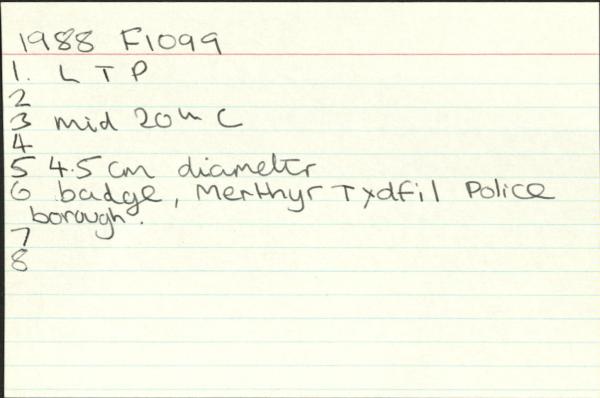 1988 F1099
1. L T P
2
3 mid 20th C
4
5 4.5 cm diameter
6 badge, Merthyr Tydfil Police
borough.
7
8